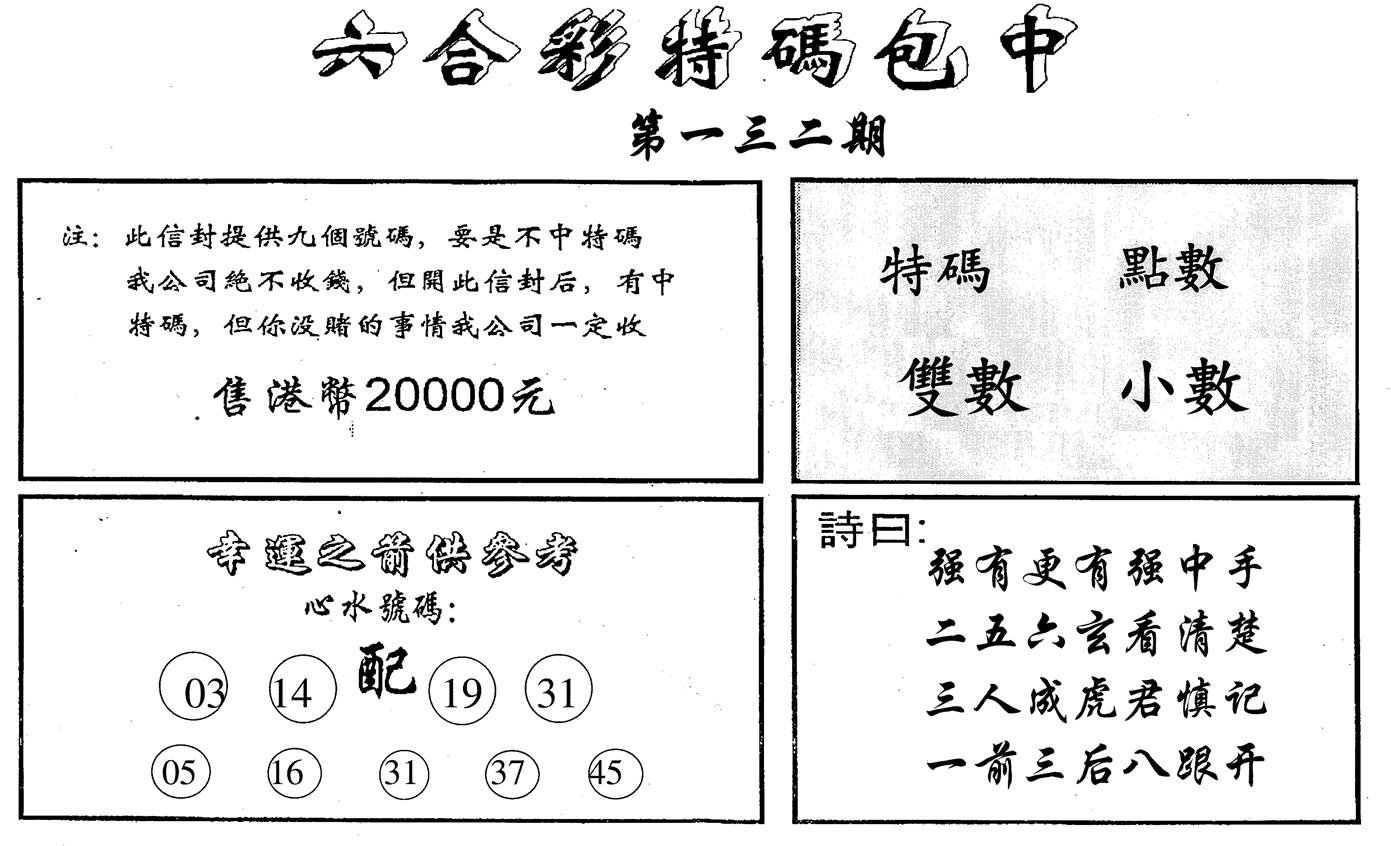 六合彩特碼包中
第一三二期
注：此信封提供九個號碼，要是不中特碼
我公司絶不收錢，但開此信封后，有中
特碼，但你没賭的事情我公司一定收
售港幣20000元
特碼 點數
雙數 小數
幸運之箭供參考
心水號碼：
03 14 配 19 31
05 16 31 37 45
詩曰：
强有更有强中手
二五六玄看清楚
三人成虎君慎记
一前三后八跟开